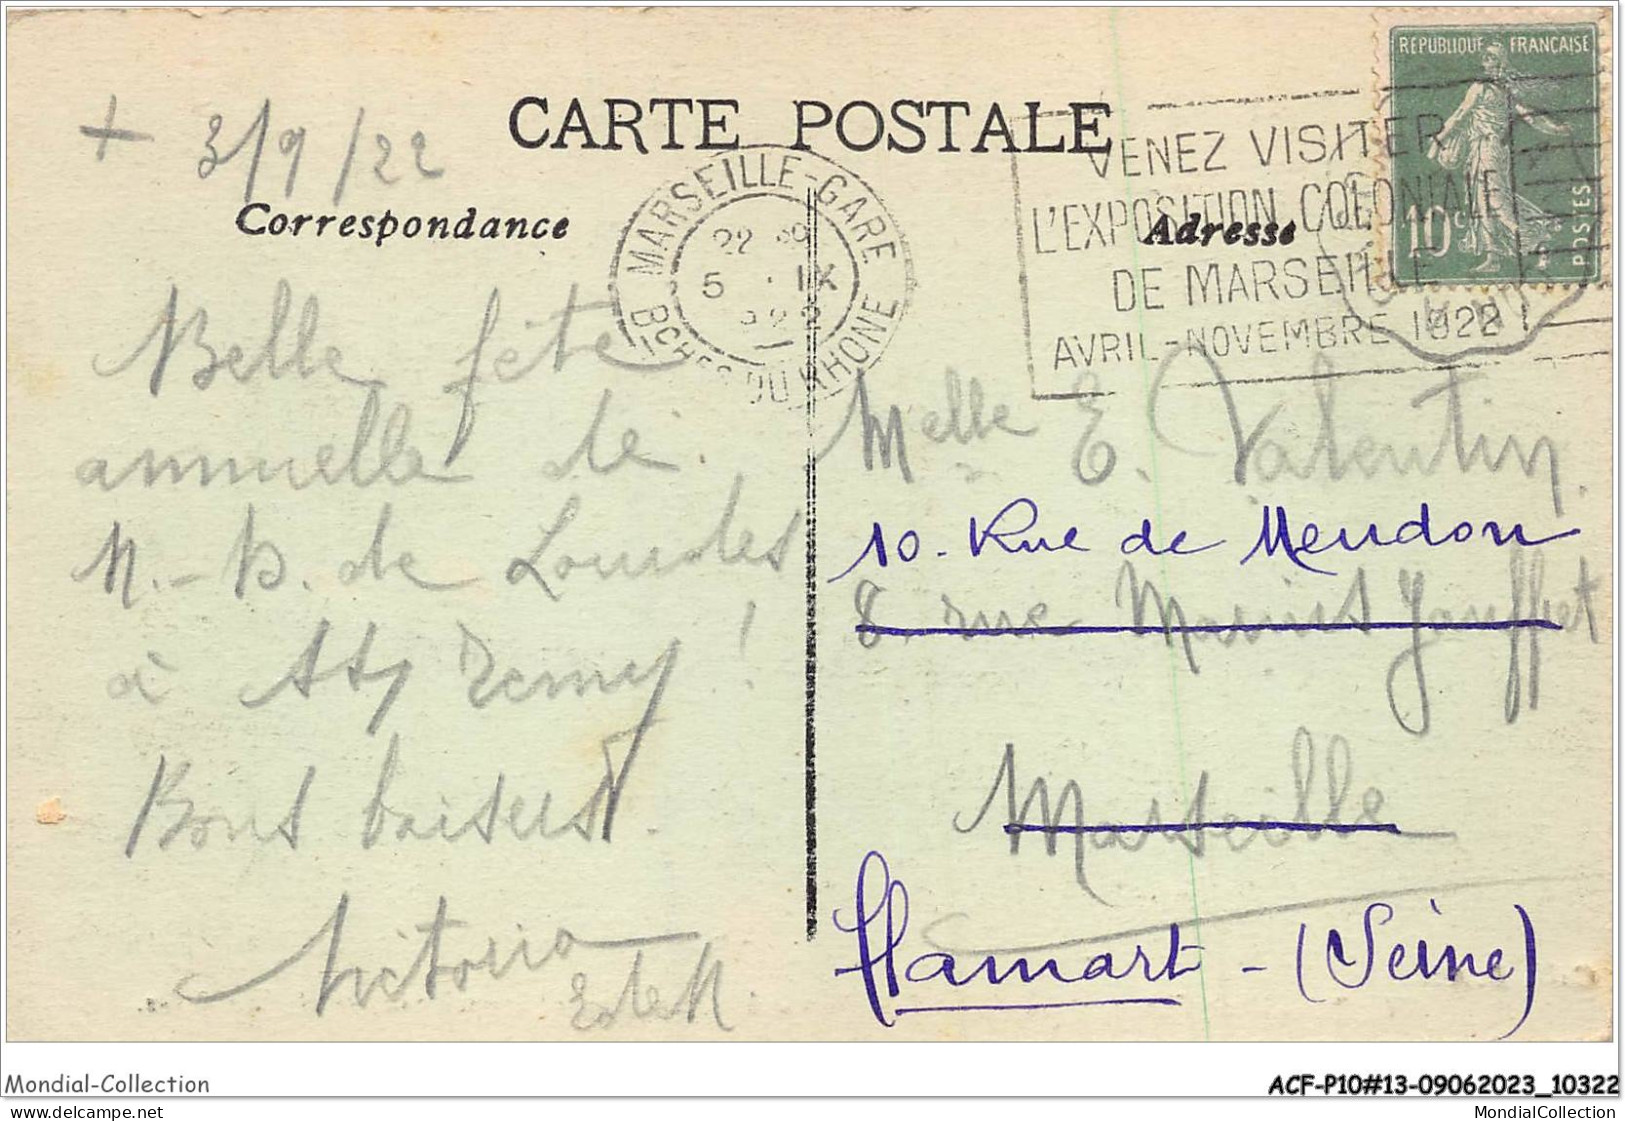 CARTE POSTALE
+ 3/9/22
Correspondance
Adresse
RÉPUBLIQUE FRANÇAISE
10c
POSTES
MARSEILLE-GARE
22
5 IX
22
BCHES DU RHONE
VENEZ VISITER
L'EXPOSITION COLONIALE
DE MARSEILLE
AVRIL-NOVEMBRE 1922
Belle fête
annuelle de
N.-D. de Lourdes
à St Remy !
Bons baisers.
Victoria
Melle E. Valentin.
10. Rue de Meudon
8. rue Marius Jauffret
Marseille
Clamart - (Seine)
Mondial-Collection
ACF-P10#13-09062023_10322
del-campe.net
MondialCollection